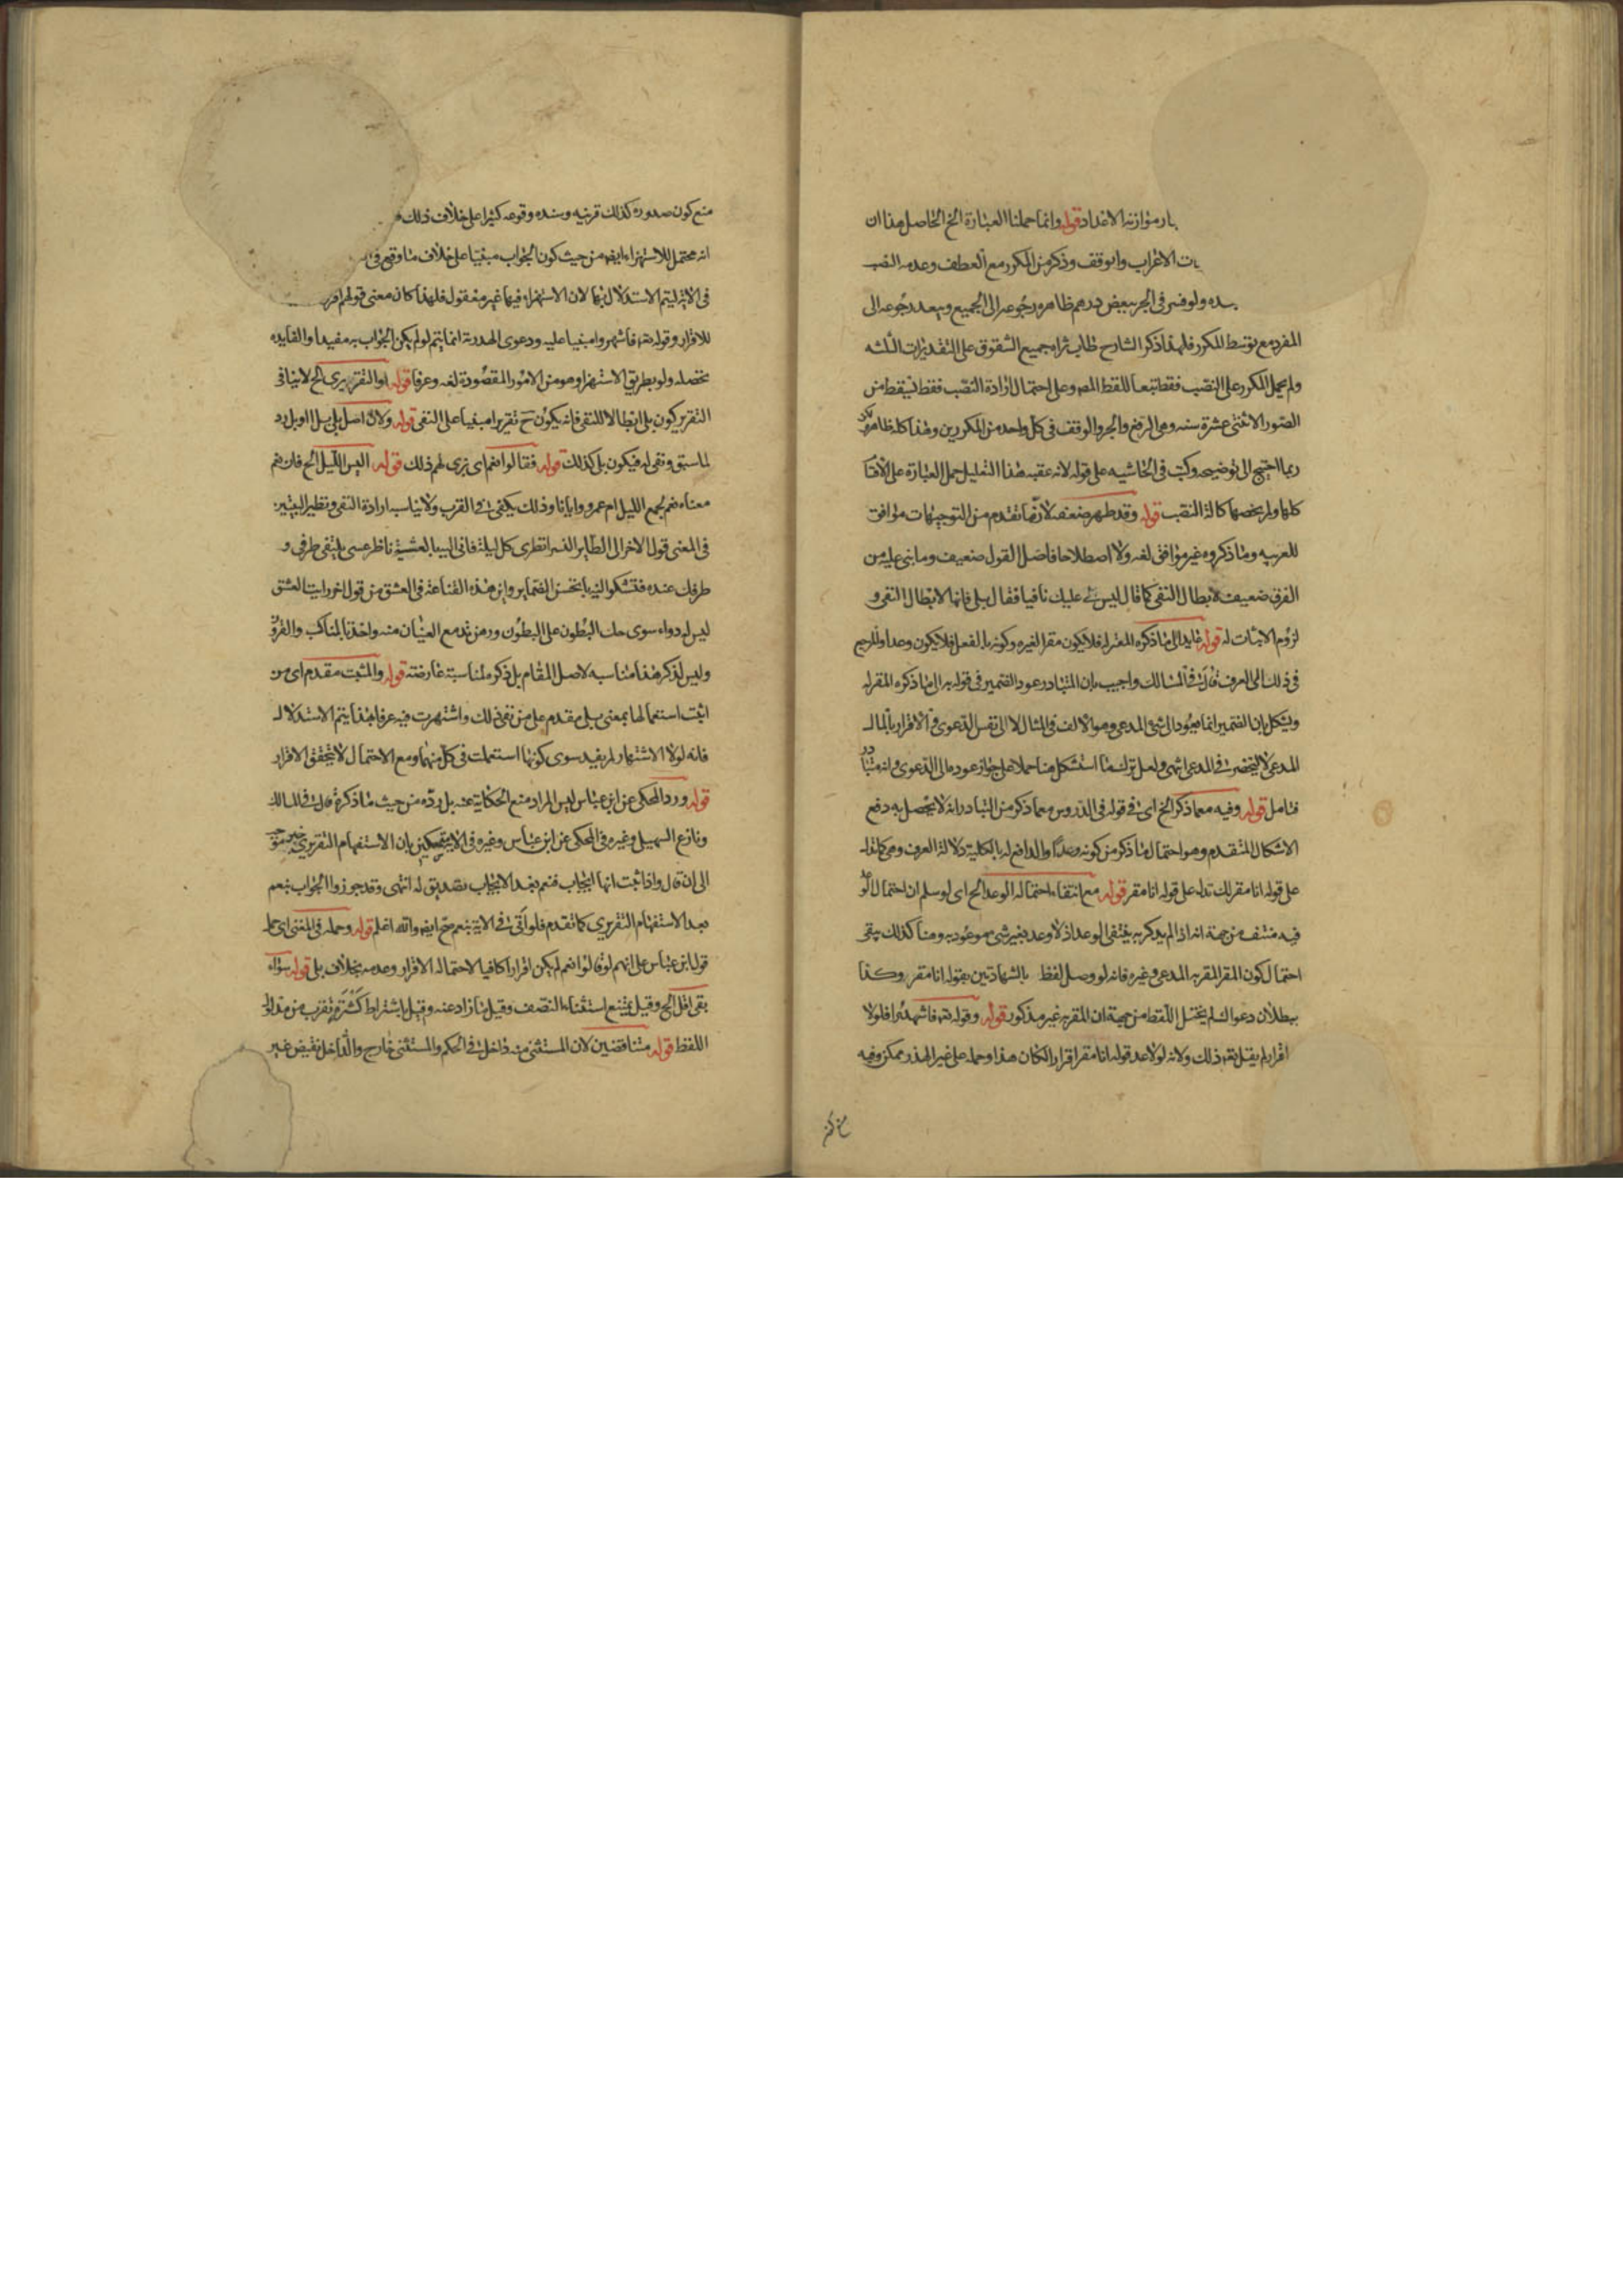 ـار موازنه الاعداد قوله وانما حملنا العبارة الخ الحاصل هذا ان
ـات الاعراب والوقف وذكر من المكرر مع العطف وعدمه النصب
ـده ولو فسر في الجر ببعض درهم ظاهره رجوعه الى الجميع ويبعد رجوعه الى
المفرد مع توسط المكرر فلهذا ذكر الشارح طاب ثراه جميع الشقوق على التقديرات الثلثه
ولم يحمل المكرر على النصب فقط تبعا للفظ المص وعلى احتمال ارادة النصب فقط تسقط من
الصور الاثنتى عشرة سته وهى الرفع والجر والوقف فى كل واحد من المكررين وهذا كله ظاهر
ربما احتيج الى توضيحه وكتب فى الحاشيه على قوله لانه عقبه هذا التعليل حمل العبارة على الاقسام
كلها ولم يخصها كالة النصب قوله وقد ظهر ضعفه لان ما تقدم من التوجيهات موافق
للعربيه وما ذكروه غير موافق لغه ولا اصطلاحا فاصل القول ضعيف وما بنى عليه من
الفرق ضعيف لابطال النفى كما قال ليس لى عليك نافيا فقال بلى فانها لابطال النفى و
لزوم الاثبات له قوله عايد الى ما ذكره المقر له فلا يكون مقرا لغيره وكونه بالفعل فلا يكون وعدا والمرجع
فى ذلك الى العرف قال فى المسالك واجيب بان المتبادر عود الضمير فى قوله به الى ما ذكره المقر له
ويشكل بان الضمير انما يعود الى الشئ المدعى وهو الالف فى المثال لا الى نفس الدعوى فى الاقرار بالمال
المدعى لا ينحصر فى المدعى انتهى ولعل ترك ما استشكل هنا حملا على جواز عوده الى الدعوى وانه متبادر
فتامل قوله وفيه مع ما ذكر الخ اى فى قوله فى الدروس مع ما ذكر من التبادر انه لا يحصل به دفع
الاشكال المتقدم وهو احتمال ما ذكر من كونه وعدا والدافع له بالكلية دلالة العرف وهى كما تدل
على قوله انا مقر لك تدل على قوله انا مقر قوله مع انتفاء احتماله الوعد الخ اى لو سلم ان احتمال الوعد
فيه منتف من جهة انه اذا لم يذكر به ينتفى الوعد اذ لا وعد بغير شئ موعود به وهنا كذلك يبقى
احتمال كون المقر المقر به المدعى وغيره فانه لو وصل لفظ بالشهادتين بقوله انا مقر وكذا
ببطلان دعواك لم يختل اللفظ من جهة ان المقر به غير مذكور قوله وقوله تع فاشهدوا فلولا
اقرار لم يقل بعد ذلك ولانه لولا عد قوله انا مقر اقرارا لكان هذرا وحمله على غير الهذر ممكن وفيه
منع كون صدوره كذلك قرينه وسنده وقوعه كثيرا على خلاف ذلك
انه محتمل للاستهزاء ايضا من حيث كون الجواب مبنيا على خلاف ما وقع فى
فى الاية ليتم الاستدلال بها لان الاستهزاء فيها غير معقول فلهذا كان معنى قولهم اقر
للاقرار وقوله تع فاشهدوا مبنيا عليه ودعوى الهذرية انما يتم لو لم يكن الجواب به مفيدا والفايده
تحصله ولو بطريق الاستهزاء وهو من الامور المقصودة لغه وعرفا قوله او التقريرى الخ لا ينافى
التقرير كون بلى ابطالا للنفى فانه يكون ح تقريرا مبنيا على النفى قوله ولان اصل بلى بل او بل رد
لما سبق ونفى له فيكون بل كذلك قوله فقالوا نعم اى نرى لهم ذلك قوله اليس الليل الخ فان نعم
معناه نعم يجمع الليل ام عمرو وايانا وذلك يكفى فى القرب ولا يناسبه ارادة النفى ونظير البيتين
فى المعنى قول الاخر الى الطاير النسر انظرى كل ليلة فانى اليه بالعشية ناظر عسى يلتقى طرفى و
طرفك عنده فنشكوا اليه ما تحسن الضماير واين هذه القناعة فى العشق من قول اخر رايت العشق
ليس له دواء سوى حك البطون على البطون ورهز تدمع العينان منه واخذ بالمناكب والقرون
وليس لذكر هذا مناسبه لاصل المقام بل ذكره لمناسبته عارضته قوله والمثبت مقدم اى من
اثبت استعمالها بمعنى بلى مقدم على من نفى ذلك واشتهرت فيه عرفا بهذا يتم الاستدلال
فانه لولا الاشتهار لم يفيد سوى كونها استعملت فى كل منهما ومع الاحتمال لا يتحقق الاقرار
قوله ورد المحكى عن ابن عباس ليس المراد منع الحكاية عنه بل رده من حيث ما ذكره قال فى المسالك
ونازع السهيلى وغيره فى المحكى عن ابن عباس وغيره فى الاية متمسكين بان الاستفهام التقريرى خبر موجب
الى ان قال واذا ثبت انها ايجاب فنعم بعد الايجاب تصديق له انتهى وقد جوزوا الجواب بنعم
بعد الاستفهام التقريرى كما تقدم فلو اتى فى الاية بنعم صح ايضا والله اعلم قوله وحمله فى المغنى اى حمل
قول ابن عباس على انهم لو قالوا نعم لم يكن اقرارا كافيا لاحتماله الاقرار وعدمه بخلاف بلى قوله سواء
بقى اقل الخ وقيل يمتنع استثناء النصف وقيل ما زاد عنه وقيل باشتراط كثرة تقرب من مدلول
اللفظ قوله متناقضين لان المستثنى منه داخل فى الحكم والمستثنى خارج والداخل نقيض غير